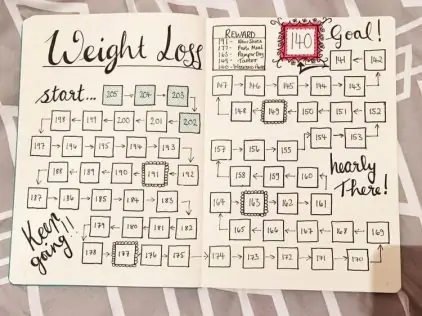 Weight Loss
start... 205 204 203
198 199 200 201 202
197 196 195 194 193
188 189 190 191 192
187 186 185 184 183
Keep
going!!
179 180 181 182
178 177 176 175
REWARD
191 - New Shoes
177 - Posh Meal
163 - Pamper Day
149 - Tattoo
140 -
140
Goal!
141 142
147 146 145 144 143
148 149 150 151 152
154 153
157 156 155
158 159 160
nearly
There!
164 163 162 161
165 166 167 168 169
174 173 172 171 170